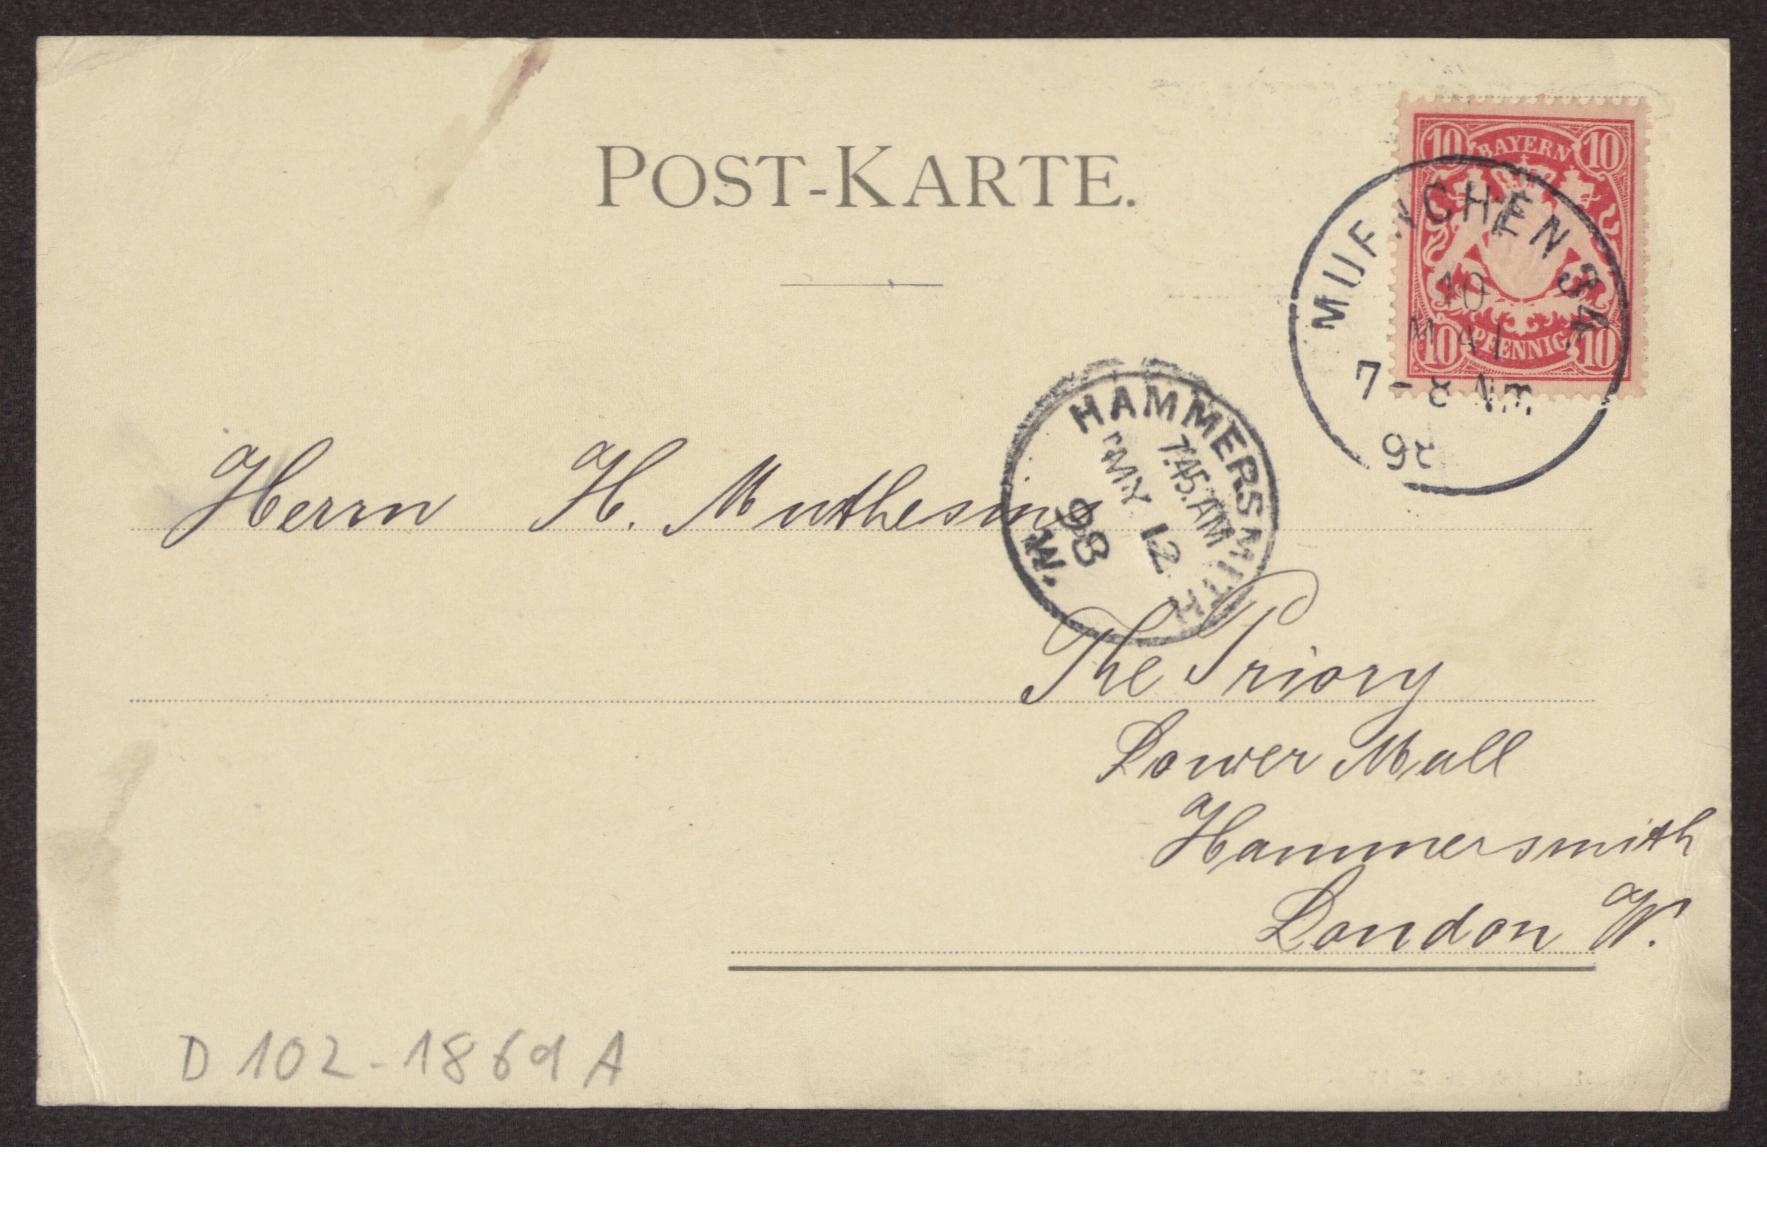 POST-KARTE.
10 BAYERN 10
10 PFENNIG 10
MUENCHEN 34
10
MAI
7-8 Nm.
98
HAMMERSMITH
7.45.AM
MY 12
98
W.
Herrn H. Muthesius
The Priory
Lower Mall
Hammersmith
London W.
D 102-1869 A